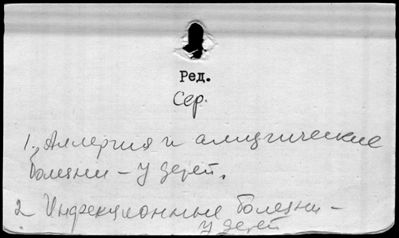 Ред.
Сер.
1. Аллергия и аллергические
болезни – у детей.
2 Инфекционные болезни –
у детей